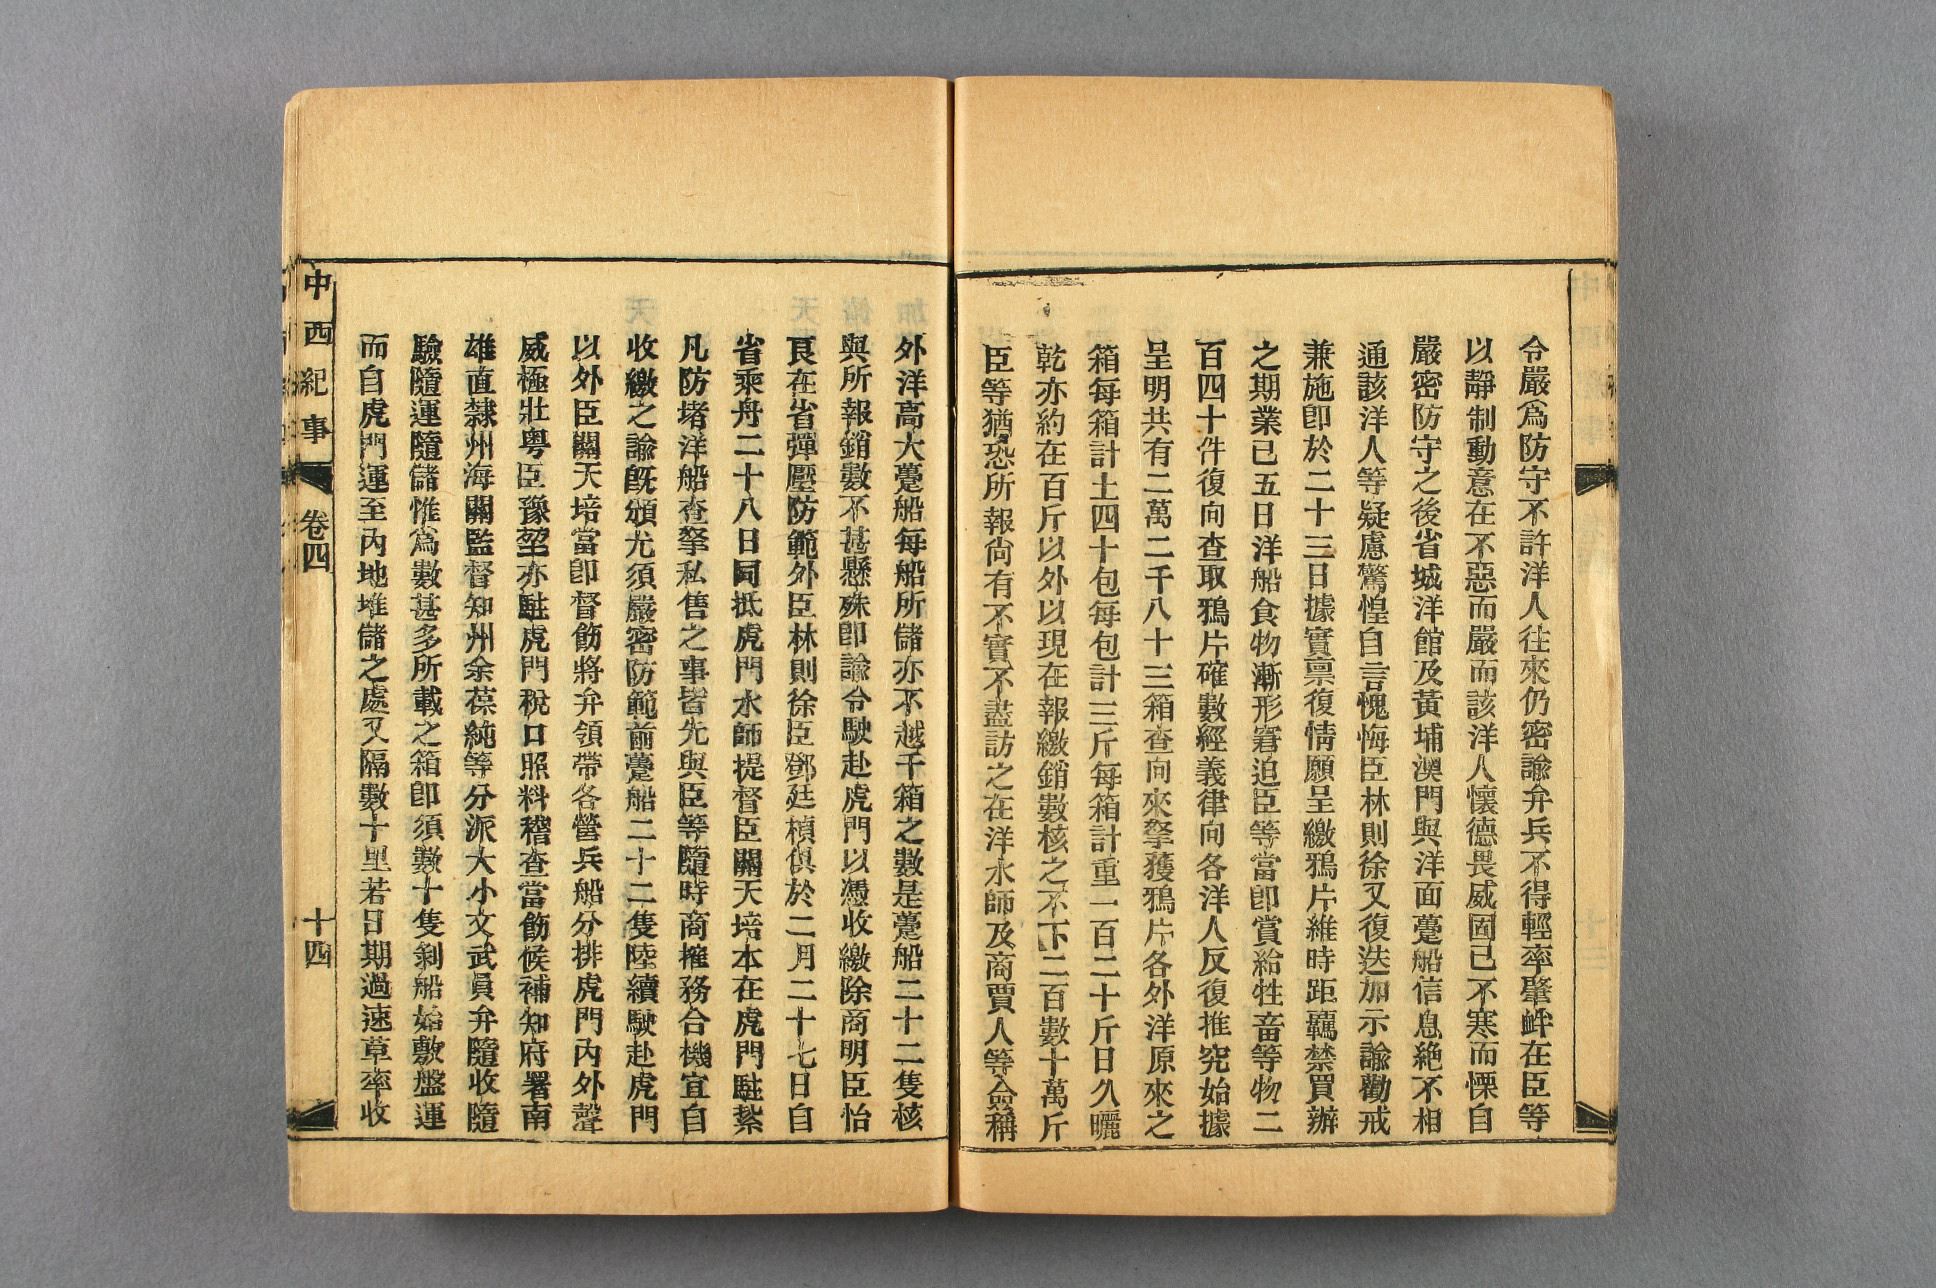 令嚴爲防守不許洋人往來仍密諭弁兵不得輕率肇衅在臣等
以靜制動意在不惡而嚴而該洋人懷德畏威固已不寒而慄自
嚴密防守之後省城洋館及黃埔澳門與洋面躉船信息絶不相
通該洋人等疑慮驚惶自言愧悔臣林則徐又復迭加示諭勸戒
兼施卽於二十三日據實禀復情願呈繳鴉片維時距覊禁買辦
之期業已五日洋船食物漸形窘迫臣等當卽賞給牲畜等物二
百四十件復向查取鴉片確數經義律向各洋人反復推究始據
呈明共有二萬二千八十三箱查向來拏獲鴉片各外洋原來之
箱每箱計土四十包每包計三斤每箱計重一百二十斤日久曬
乾亦約在百斤以外以現在報繳銷數核之不下二百數十萬斤
臣等猶恐所報尙有不實不盡訪之在洋水師及商賈人等僉稱
外洋高大躉船每船所儲亦不越千箱之數是躉船二十二隻核
與所報銷數不甚懸殊卽諭令駛赴虎門以憑收繳除商明臣怡
良在省彈壓防範外臣林則徐臣鄧廷楨俱於二月二十七日自
省乘舟二十八日同抵虎門水師提督臣關天培本在虎門駐紮
凡防堵洋船查拏私售之事皆先與臣等隨時商搉務合機宜自
收繳之諭旣頒尤須嚴密防範前躉船二十二隻陸續駛赴虎門
以外臣關天培當卽督飭將弁領帶各營兵船分排虎門內外聲
威極壯粤臣豫堃亦駐虎門稅口照料稽查當飭候補知府署南
雄直隸州海關監督知州余葆純等分派大小文武員弁隨收隨
驗隨運隨儲惟爲數甚多所載之箱卽須數十隻剝船始敷盤運
而自虎門運至內地堆儲之處又隔數十里若日期過速草率收
中西紀事
卷四
十四